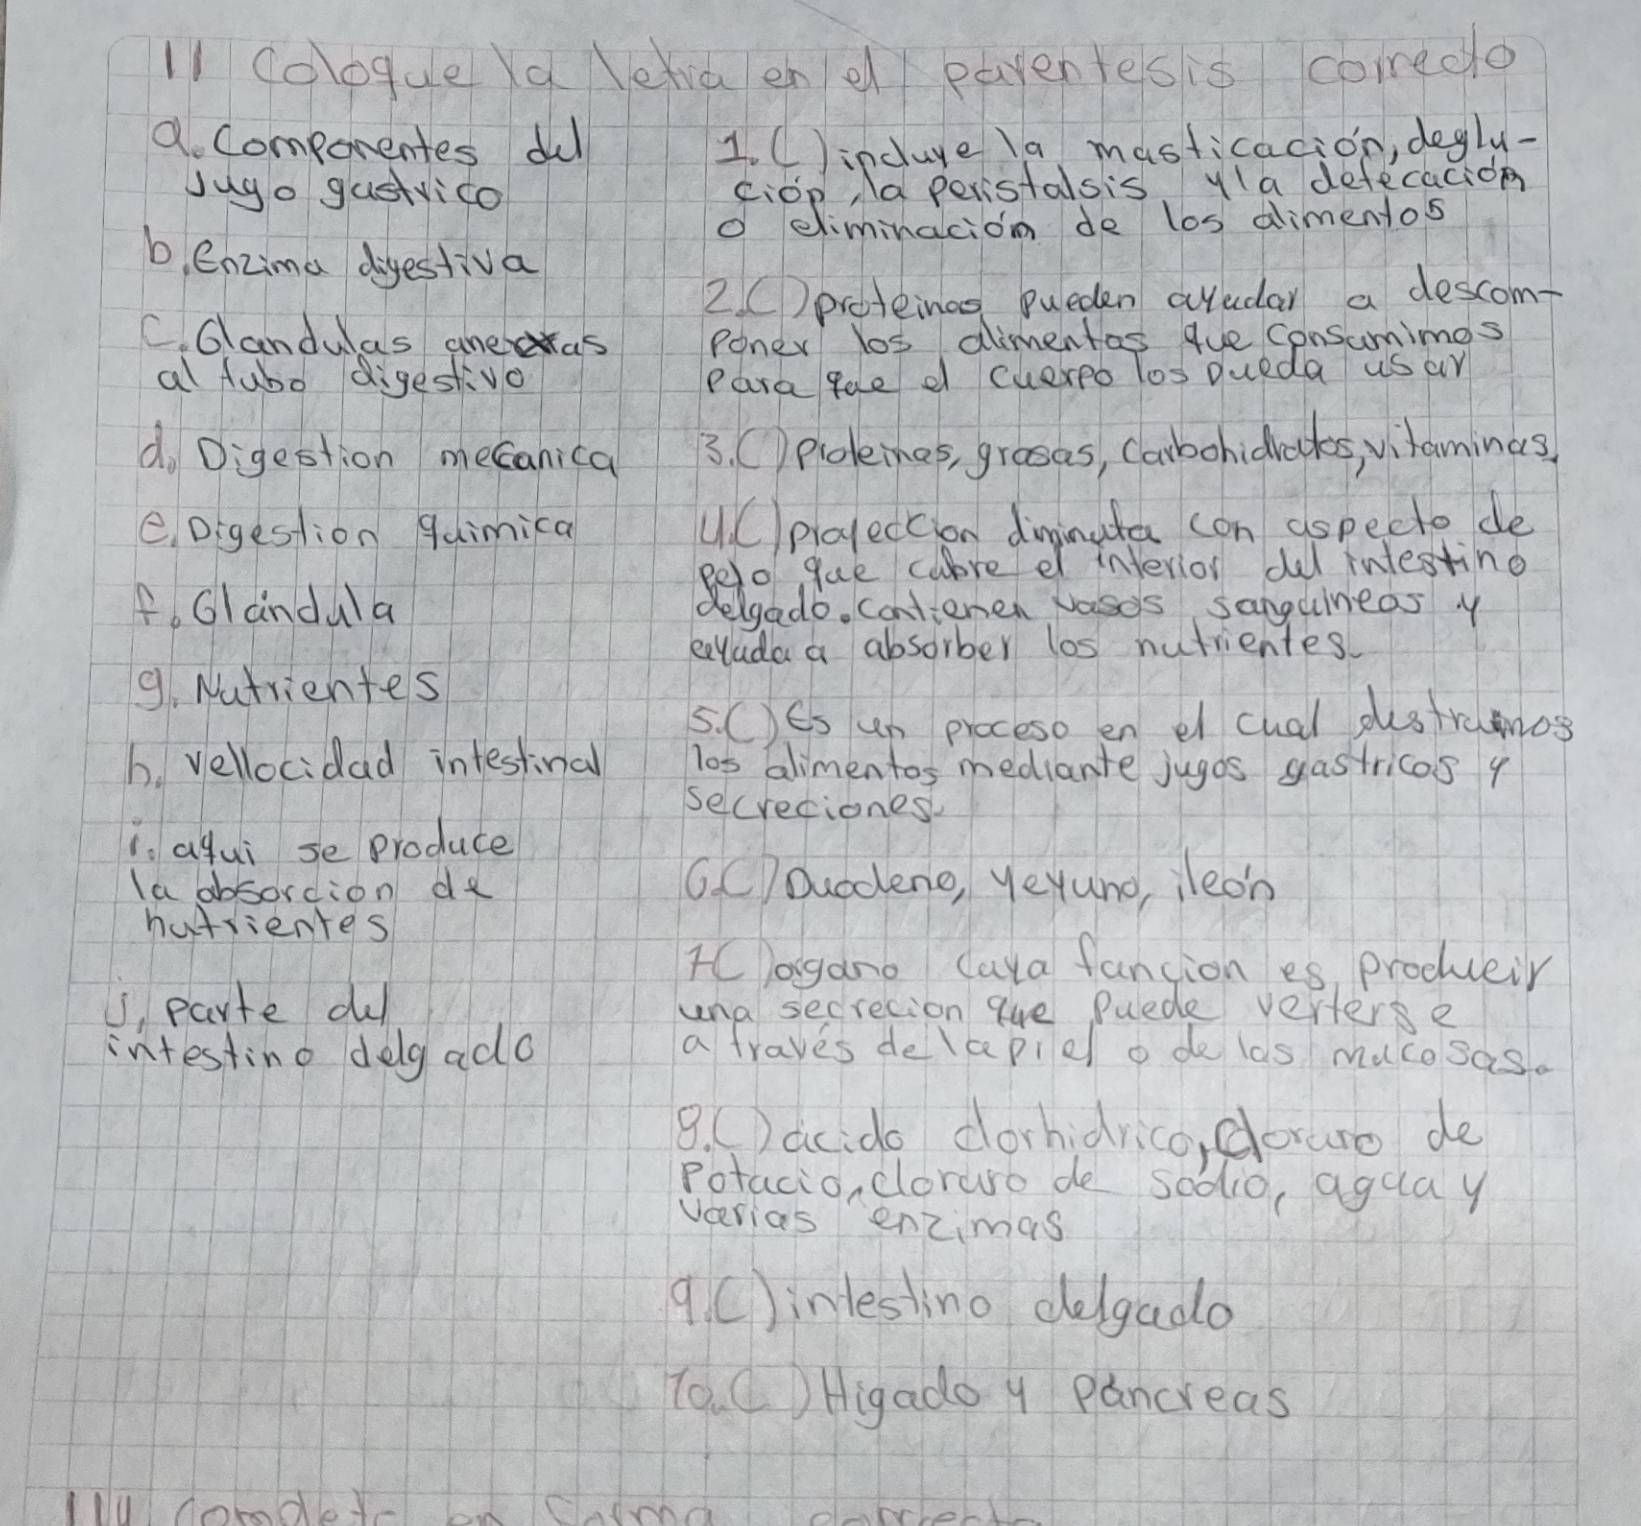 11 Coloque la letra en el parentesis correcto
a. Componentes del
Jugo gastrico
b. Enzima digestiva
C. Glandulas anexas
al tubo digestivo
d. Digestion mecanica
e. Digestion quimica
f. Glándula
g. Nutrientes
h. vellocidad intestinal
i. aqui se produce
la absorcion de
nutrientes
j. parte del
intestino delgado
1. ( ) incluye la masticación, deglu-
ción, la peristalsis y la defecación
o eliminación de los alimentos
2. ( ) proteinas pueden ayudar a descom-
poner los alimentos que consumimos
Para que el cuerpo los pueda usar
3. ( ) Proteinas, grasas, Carbohidratos, vitaminas.
4. ( ) proyeccion diminuta con aspecto de
pelo que cubre el interior del intestino
delgado. contienen vasos sanguineos y
ayuda a absorber los nutrientes.
5. ( ) Es un proceso en el cual destruimos
los alimentos mediante jugos gastricos y
secreciones.
6. ( ) Duodeno, yeyuno, ileón
7 ( ) organo cuya funcion es producir
una secrecion que puede verterse
a través de la piel o de las mucosas.
8. ( ) ácido clorhidrico, cloruro de
Potacio, cloruro de sodio, agua y
varias enzimas
9. ( ) intestino delgado
10. ( ) Higado y páncreas
111 complete en forma correcta